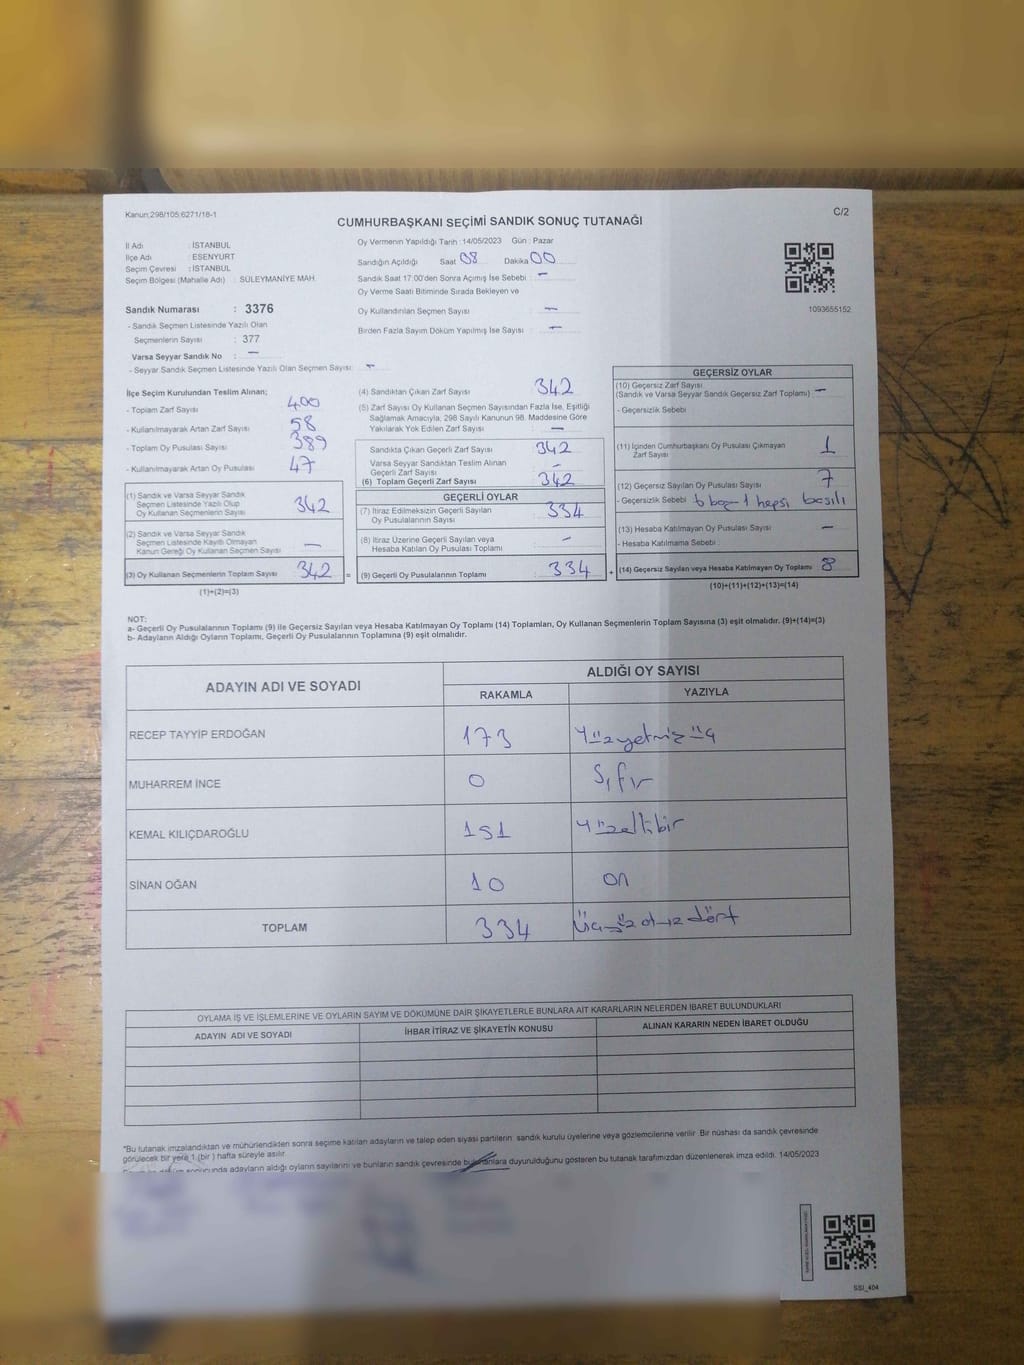 Kanun;298/105;6271/18-1
C/2
CUMHURBAŞKANI SEÇİMİ SANDIK SONUÇ TUTANAĞI
İl Adı : İSTANBUL
İlçe Adı : ESENYURT
Seçim Çevresi : İSTANBUL
Seçim Bölgesi (Mahalle Adı) : SÜLEYMANİYE MAH.
Oy Vermenin Yapıldığı Tarih :14/05/2023 Gün : Pazar
Sandığın Açıldığı Saat 08 Dakika 00
Sandık Saat 17:00'den Sonra Açımış İse Sebebi : -
Oy Verme Saati Bitiminde Sırada Bekleyen ve
Oy Kullandırılan Seçmen Sayısı : -
Birden Fazla Sayım Döküm Yapılmış İse Sayısı : -
1093655152
Sandık Numarası : 3376
- Sandık Seçmen Listesinde Yazılı Olan
Seçmenlerin Sayısı : 377
Varsa Seyyar Sandık No : -
- Seyyar Sandık Seçmen Listesinde Yazılı Olan Seçmen Sayısı: -
İlçe Seçim Kurulundan Teslim Alınan;
- Toplam Zarf Sayısı 400
- Kullanılmayarak Artan Zarf Sayısı 58
- Toplam Oy Pusulası Sayısı 389
- Kullanılmayarak Artan Oy Pusulası 47
(1) Sandık ve Varsa Seyyar Sandık
Seçmen Listesinde Yazılı Olup
Oy Kullanan Seçmenlerin Sayısı 342
(2) Sandık ve Varsa Seyyar Sandık
Seçmen Listesinde Kayıtlı Olmayan
Kanun Gereği Oy Kullanan Seçmen Sayısı -
(3) Oy Kullanan Seçmenlerin Toplam Sayısı 342 =
(1)+(2)=(3)
(4) Sandıktan Çıkan Zarf Sayısı 342
(5) Zarf Sayısı Oy Kullanan Seçmen Sayısından Fazla İse, Eşitliği
Sağlamak Amacıyla, 298 Sayılı Kanunun 98. Maddesine Göre
Yakılarak Yok Edilen Zarf Sayısı : -
Sandıkta Çıkan Geçerli Zarf Sayısı : 342
Varsa Seyyar Sandıktan Teslim Alınan
Geçerli Zarf Sayısı : -
(6) Toplam Geçerli Zarf Sayısı : 342
GEÇERLİ OYLAR
(7) İtiraz Edilmeksizin Geçerli Sayılan
Oy Pusulalarının Sayısı : 334
(8) İtiraz Üzerine Geçerli Sayılan veya
Hesaba Katılan Oy Pusulası Toplamı : -
(9) Geçerli Oy Pusulalarının Toplamı : 334 +
GEÇERSİZ OYLAR
(10) Geçersiz Zarf Sayısı
(Sandık ve Varsa Seyyar Sandık Geçersiz Zarf Toplamı) : -
- Geçersizlik Sebebi :
(11) İçinden Cumhurbaşkanı Oy Pusulası Çıkmayan
Zarf Sayısı : 1
(12) Geçersiz Sayılan Oy Pusulası Sayısı : 7
- Geçersizlik Sebebi : 6 boş - 1 hepsi basılı
(13) Hesaba Katılmayan Oy Pusulası Sayısı : -
- Hesaba Katılmama Sebebi :
(14) Geçersiz Sayılan veya Hesaba Katılmayan Oy Toplamı : 8
(10)+(11)+(12)+(13)=(14)
NOT:
a- Geçerli Oy Pusulalarının Toplamı (9) ile Geçersiz Sayılan veya Hesaba Katılmayan Oy Toplamı (14) Toplamları, Oy Kullanan Seçmenlerin Toplam Sayısına (3) eşit olmalıdır. (9)+(14)=(3)
b- Adayların Aldığı Oyların Toplamı, Geçerli Oy Pusulalarının Toplamına (9) eşit olmalıdır.
ADAYIN ADI VE SOYADI
ALDIĞI OY SAYISI
RAKAMLA YAZIYLA
RECEP TAYYİP ERDOĞAN 173 Yüzyetmişüç
MUHARREM İNCE 0 Sıfır
KEMAL KILIÇDAROĞLU 151 Yüzellibir
SİNAN OĞAN 10 on
TOPLAM 334 Üçyüz otuz dört
OYLAMA İŞ VE İŞLEMLERİNE VE OYLARIN SAYIM VE DÖKÜMÜNE DAİR ŞİKAYETLERLE BUNLARA AİT KARARLARIN NELERDEN İBARET BULUNDUKLARI
ADAYIN ADI VE SOYADI İHBAR İTİRAZ VE ŞİKAYETİN KONUSU ALINAN KARARIN NEDEN İBARET OLDUĞU
*Bu tutanak imzalandıktan ve mühürlendikten sonra seçime katılan adayların ve talep eden siyasi partilerin sandık kurulu üyelerine veya gözlemcilerine verilir. Bir nüshası da sandık çevresinde
görülecek bir yere 1 (bir) hafta süreyle asılır.
sonucunda adayların aldığı oyların sayılarını ve bunların sandık çevresinde bulunanlara duyurulduğunu gösteren bu tutanak tarafımızdan düzenlenerek imza edildi. 14/05/2023
SSI_404